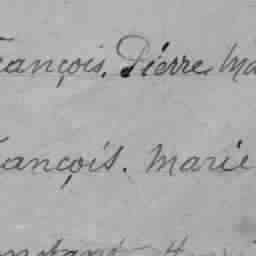 rançois. Pierre Ma
rançois. Marie